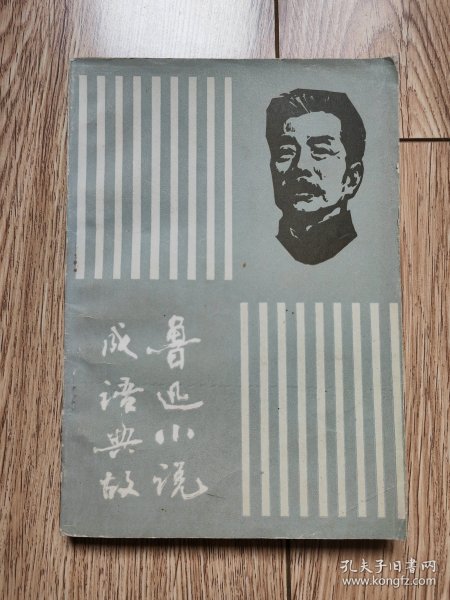 鲁迅小说
成语典故
孔夫子旧书网
www.kongfz.com